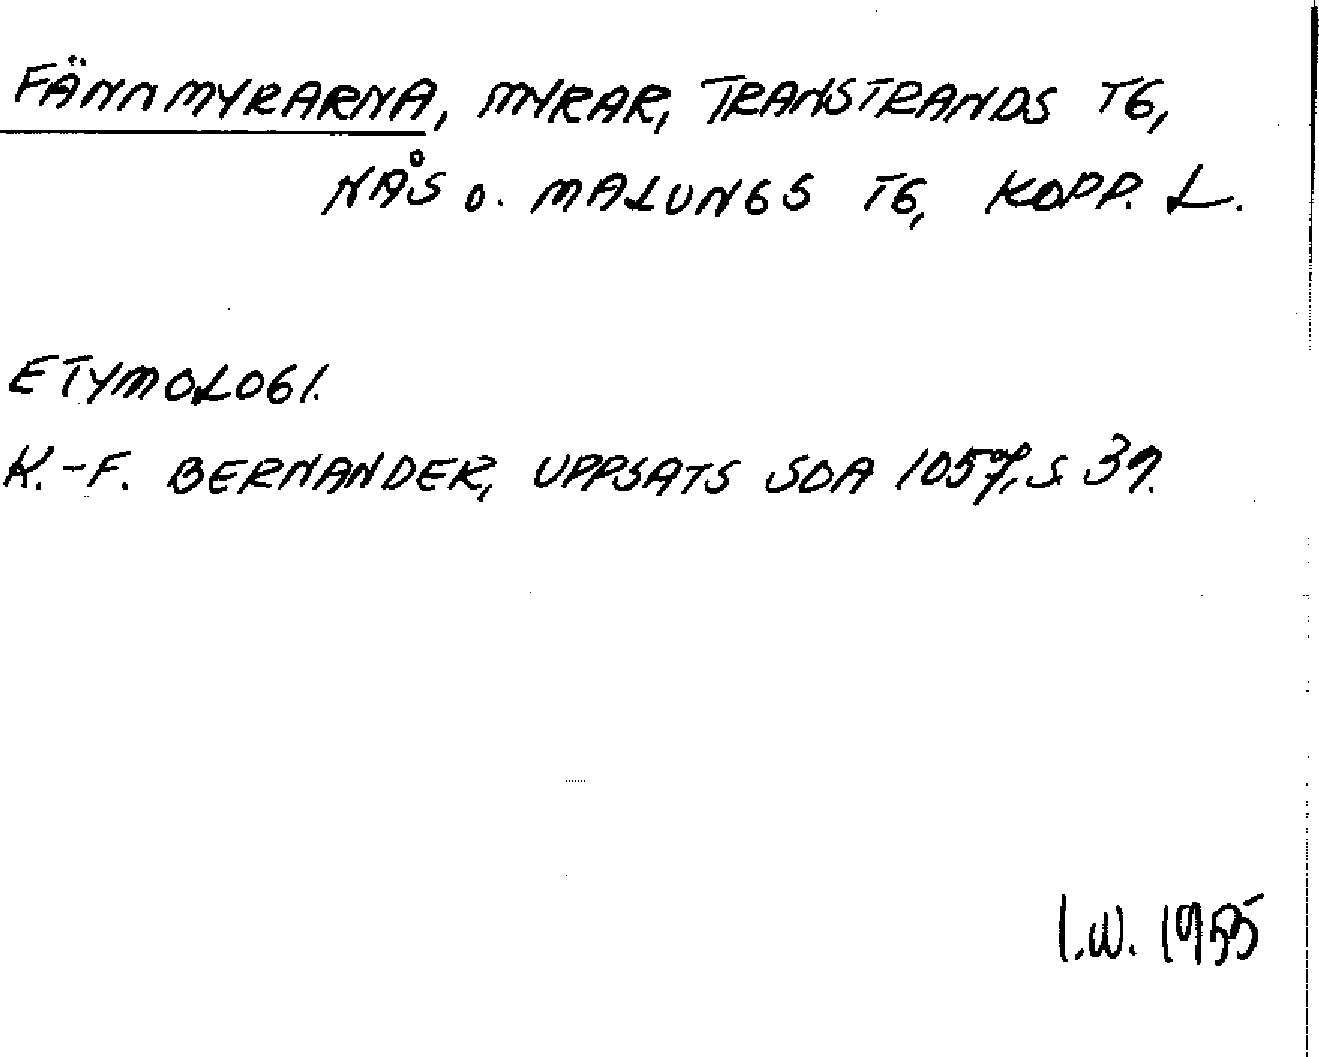 FÄNNMYRARNA, MYRAR, TRANSTRANDS TG,
NÅS O. MALUNGS TG, KOPP. L.
ETYMOLOGI.
K.-F. BERNANDER, UPPSATS SOA S. 39.
I.W. 1955